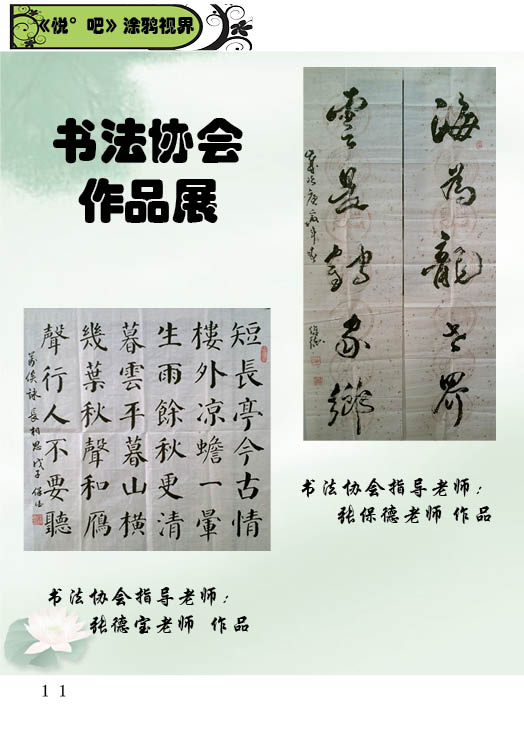 《悦°吧》涂鸦视界
书法协会
作品展
海為龍世界
雲是鶴家鄉
歲次庚寅年春
短長亭今古情
樓外凉蟾一暈
生雨餘秋更清
暮雲平暮山横
幾葉秋聲和鴈
聲行人不要聽
俟詠長相思戊子
书法协会指导老师：
张保德老师 作品
书法协会指导老师：
张德宝老师 作品
11